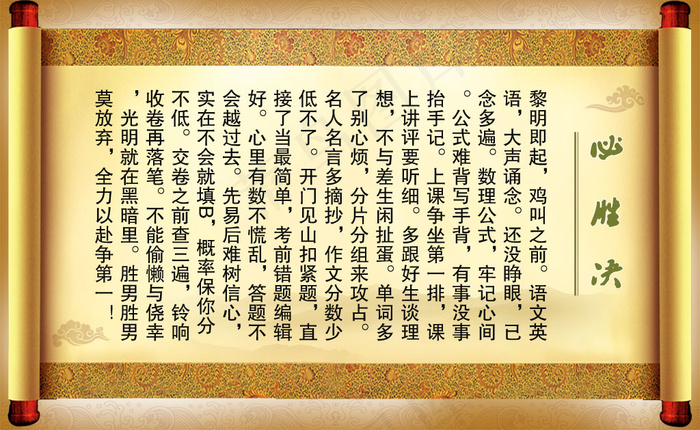 必胜决
黎明即起，鸡叫之前。语文英
语，大声诵念。还没睁眼，已
念多遍。数理公式，牢记心间
。公式难背写手背，有事没事
抬手记。上课争坐第一排，课
上讲评要听细。多跟好生谈理
想，不与差生闲扯蛋。单词多
了别心烦，分片分组来攻占。
名人名言多摘抄，作文分数少
低不了。开门见山扣紧题，直
接了当最简单，考前错题编辑
好。心里有数不慌乱，答题不
会越过去。先易后难树信心，
实在不会就填B，概率保你分
不低。交卷之前查三遍，铃响
收卷再落笔。不能偷懒与侥幸
，光明就在黑暗里。胜男胜男
莫放弃，全力以赴争第一！